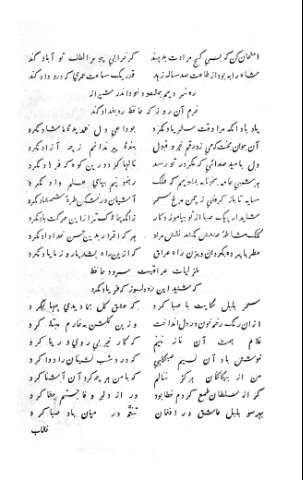 امتحان کن که بسی گنج مرادت بدهند گر خرابی چو مرا لطف تو آباد کند
شاه را به بود از طاعت صد ساله زهد قدر یک ساعت عمری که درو داد کند
ره نبردیم بمقصود خود اندر شیراز
خرم آن روز که حافظ ره بغداد کند
یاد باد آنکه ز ما وقت سفر یاد نکرد بوداعی دل غمدیده ما شاد نکرد
آن جوان بخت که می زد رقم خیر و قبول بنده پیر ندانم ز چه آزاد نکرد
دل بامید صدائی که مگر در تو رسد نالها کرد درین کوه که فرهاد نکرد
جامه بخونابه بشویم که فلک رهنمونیم بپای علم داد نکرد
سایه تا باز گرفتی ز چمن مرغ سحر آشیان در شکن طره شمشاد نکرد
شاید ار پیک صبا از تو بیاموزد کار زانکه چالاکتر ازین حرکت باد نکرد
کلک مشاطه صنعش نکشد نقش مراد هر که اقرار بدین حسن خداداد نکرد
مطربا پرده بگردان و بزن راه عراق که ازین راه بشد یار و ز ما یاد نکرد
غزلیات عراقیست سرود حافظ
که شنید این ره دلسوز که فریاد نکرد
سحر بلبل حکایت با صبا کرد که عشق گل بما دیدی چها کرد
ازان رنگ رخم خون در دل انداخت وزین گلشن بخارم مبتلا کرد
غلام همت آن نازنینم که کار خیر بی روی و ریا کرد
خوشش باد آن نسیم صبحگاهی که درد شب نشینان را دوا کرد
من از بیگانگان هرگز ننالم که با من هر چه کرد آن آشنا کرد
گر از سلطان طمع کردم خطا بود ور از دلبر وفا جستم جفا کرد
بهر سو بلبل عاشق در افغان تنعم در میان باد صبا کرد
نقاب